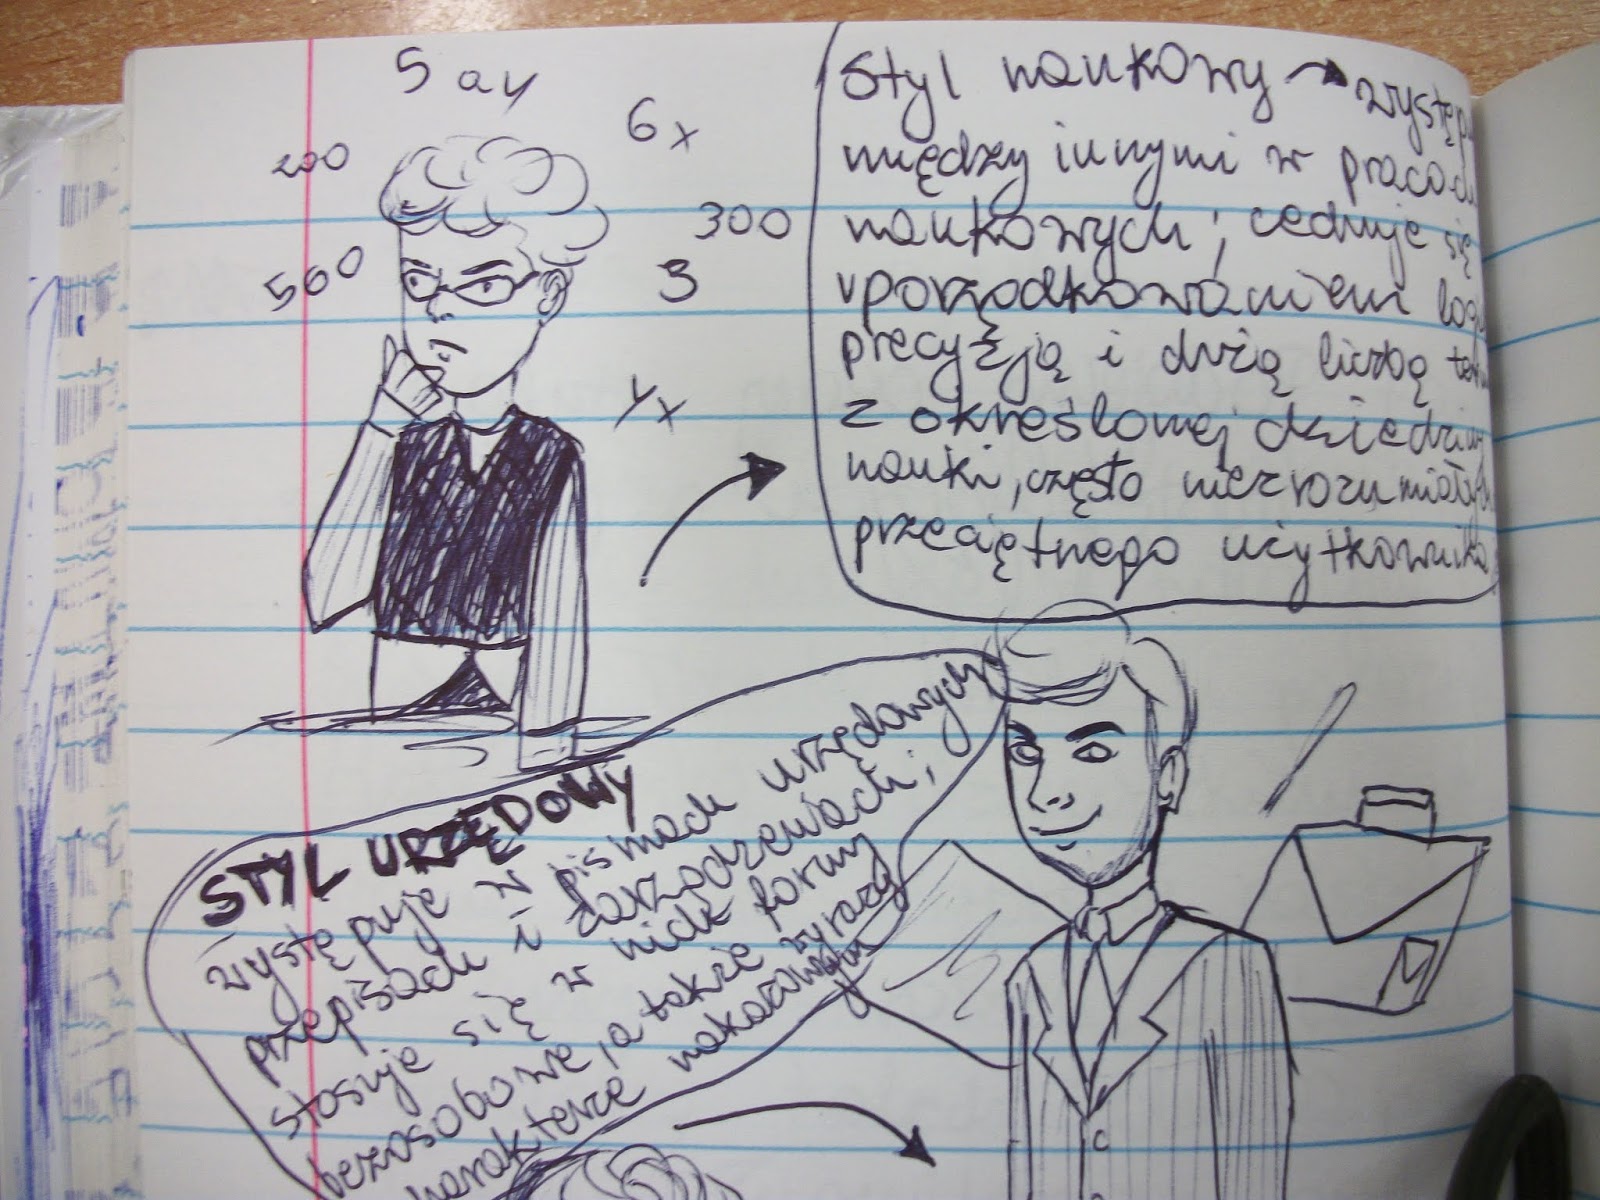 5 a y
6 x
200
300
560
3
y x
Styl naukowy → występu
między innymi w pracach
naukowych; cechuje się
uporządkowaniem logi
precyzją i dużą liczbą term
z określonej dziedziny
nauki, często niezrozumiałych
przeciętnego użytkownika
STYL URZĘDOWY
występuje w pismach urzędowych
przepisach i zarządzeniach;
stosuje się w nich formy
bezosobowe, a także wyrazy
charakterze nakazującym